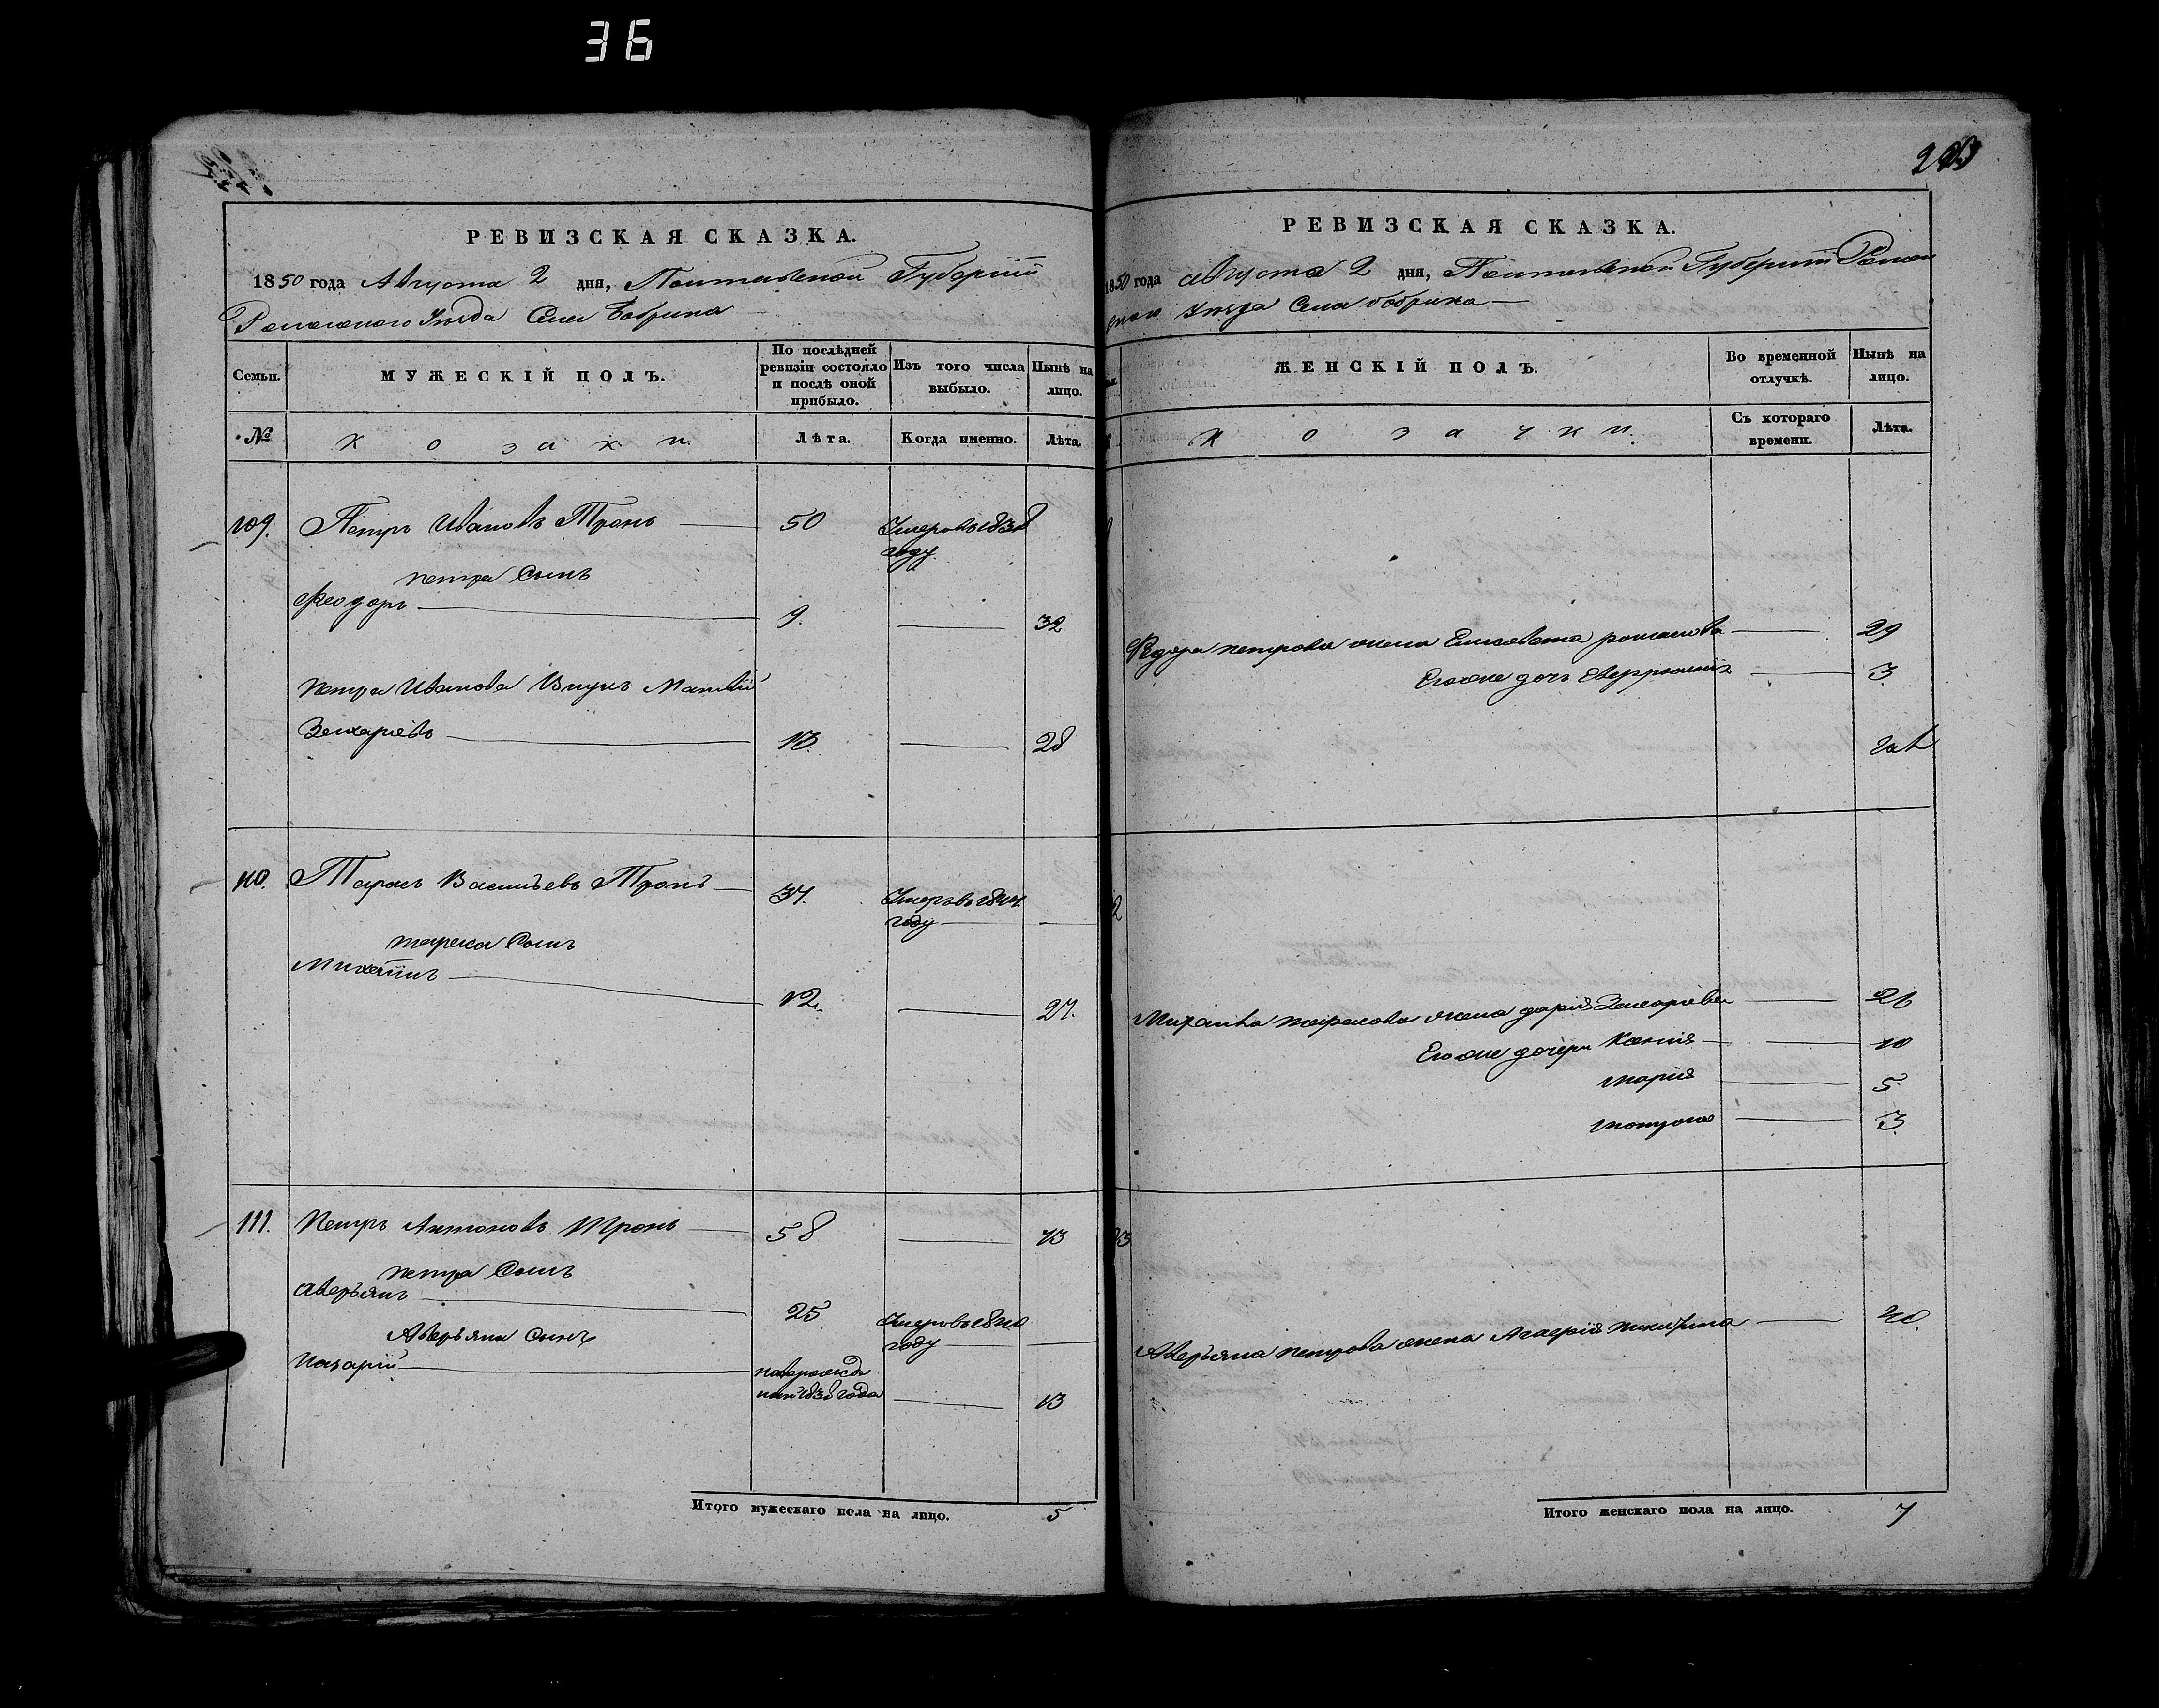 36
РЕВИЗСКАЯ СКАЗКА.
1850 года Августа 2 дня, Полтавской Губернiи
Роменского Уезда Села Бобрика
Семьи.
МУЖЕСКІЙ ПОЛЪ.
По послѣдней ревизіи состояло и послѣ оной прибыло.
Изъ того числа выбыло.
Нынѣ на лицо.
№
козаки
Лѣта.
Когда именно.
Лѣта.
109. Петръ Ивановъ Тронь 50 Умеръ въ 1838
году
Петра Сынъ
Феодоръ 9. 32
Петра Иванова Внукъ Матвій
Захаріевъ 13. 28
110. Тарасъ Васильевъ Тронь 37. Умеръ въ
году
Тараса Сынъ
Михаилъ 12. 27.
111. Петръ Антоновъ Тронь 58 73
Петра Сынъ
Аверьянъ 25 Умеръ въ 1840
году
Аверьяна Сынъ
Назарій
1838 года 13
Итого мужескаго пола на лицо. 5
РЕВИЗСКАЯ СКАЗКА.
1850 года августа 2 дня, Полтавской Губернiи Ромен
ского Уезда Села бобрика
ЖЕНСКІЙ ПОЛЪ.
Во временной отлучкѣ.
Нынѣ на лицо.
козачки.
Съ котораго времени.
Лѣта.
Федора петрова жена Елисавета романова 29
Его же дочь 3
Михаила тарасова жена дарія Захаріева 26
Его же дочери Ксенія 10
марія 5
3.
Аверьяна петрова жена никитина 40.
Итого женскаго пола на лицо. 7